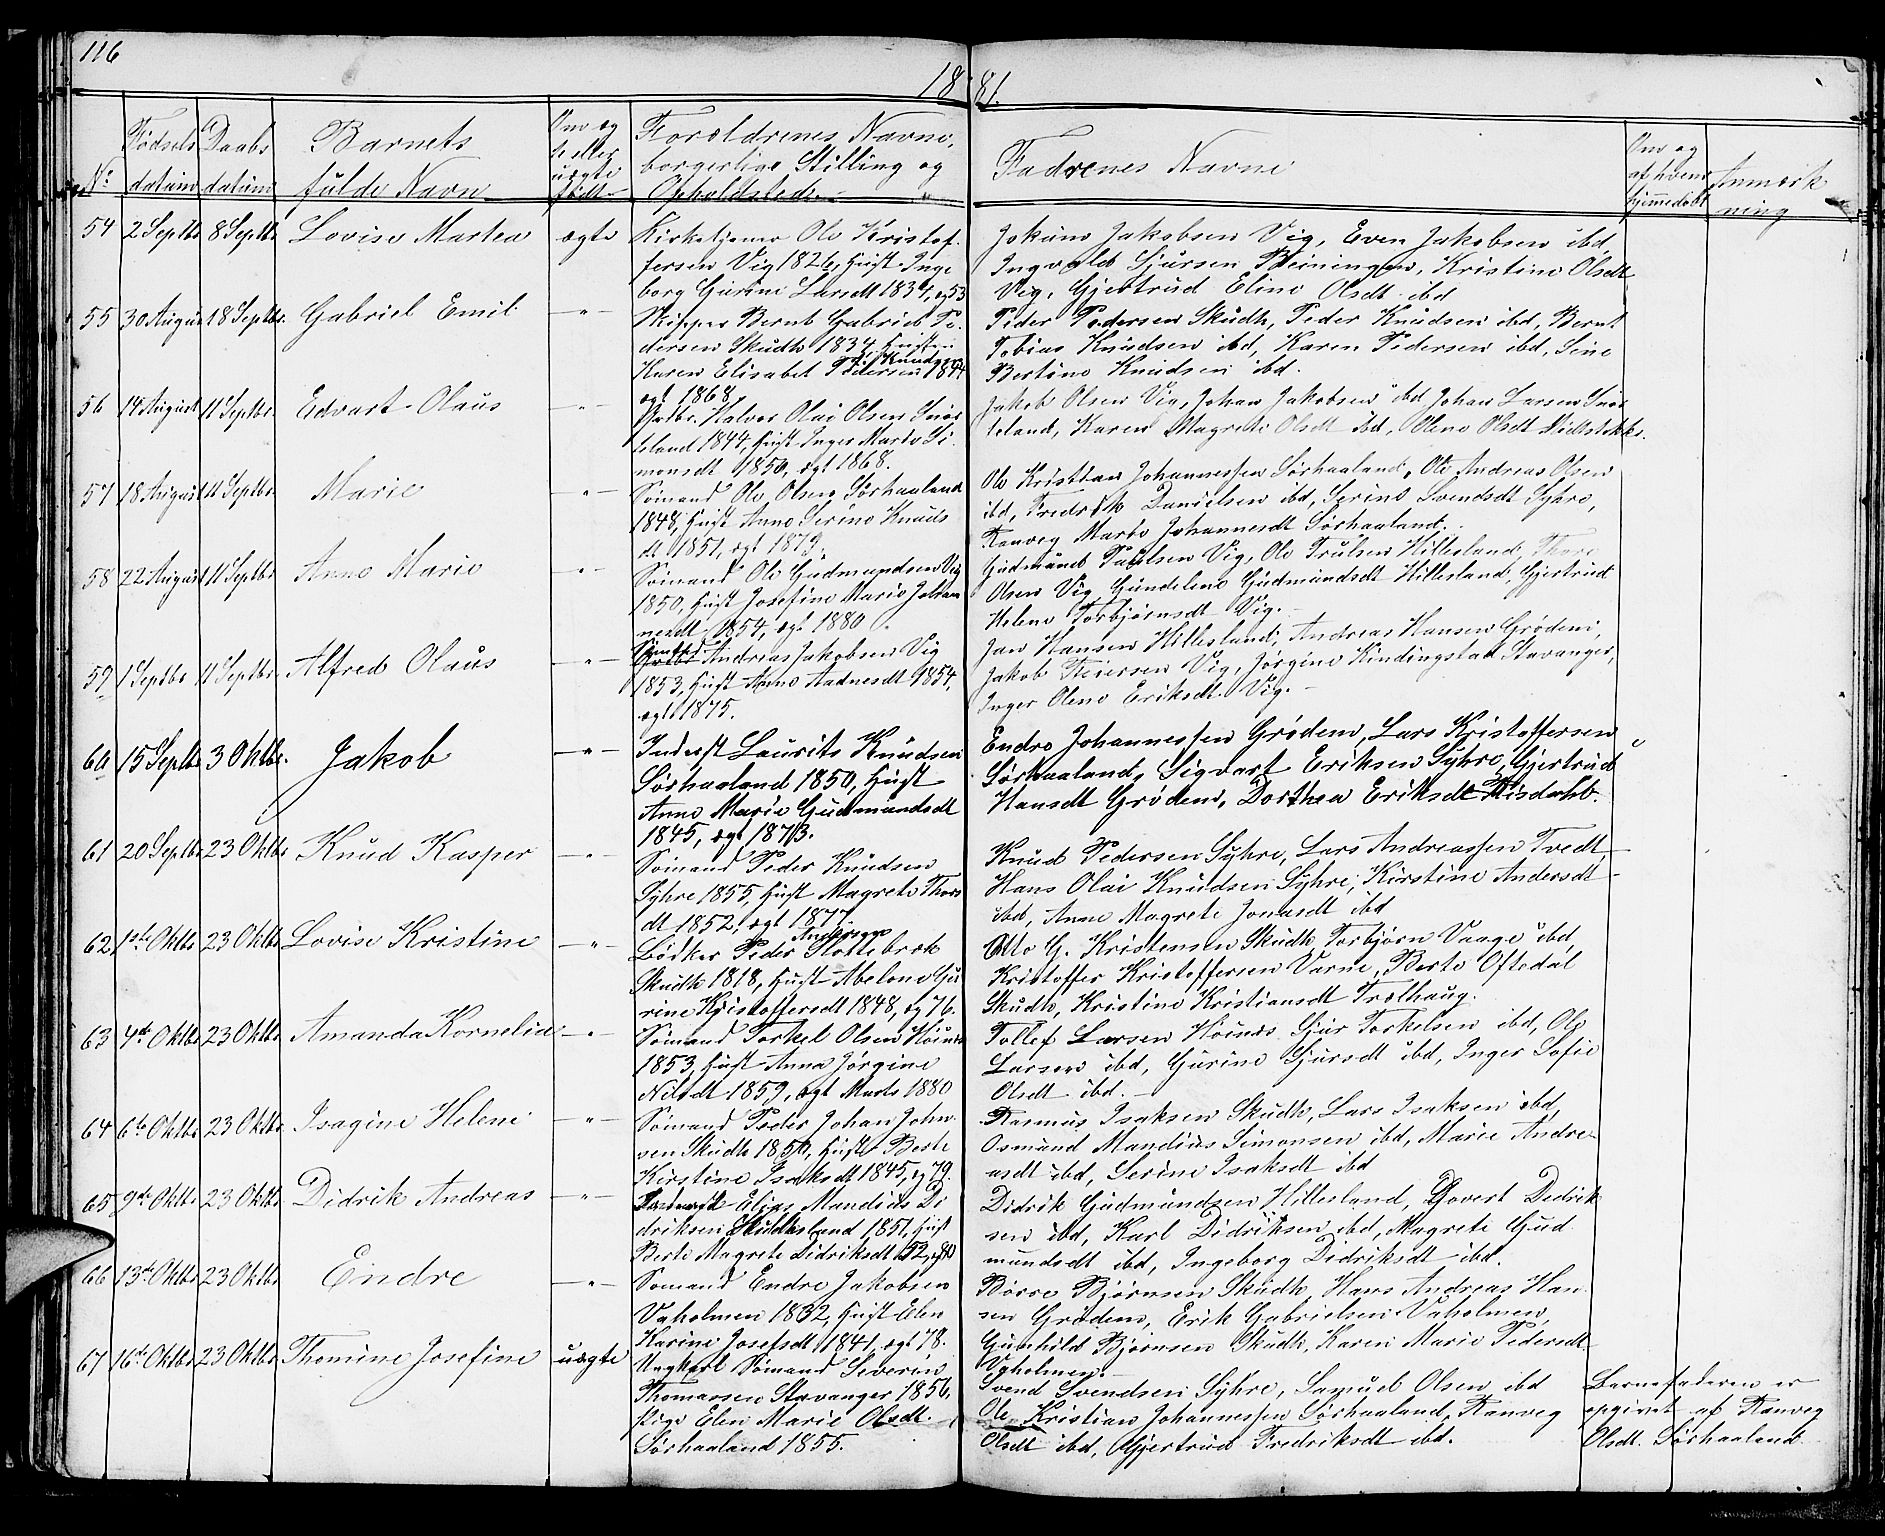 116
18 81.
No
Fødsels datum
Daabs datum
Barnets fulde Navn
Om ægte eller uægte født
Forældrenes Navne, borgerlige Stilling og Opholdsted
Fadrenes Navne
Om og af hvem hjemmedøbt
Anmærkning
54 2 Septbr 8 Septbr Lovise Martea ægte
Kirketjener Ole Kristof-
fersen Vig 1826, Hust. Inge
borg Gurine Larsdt 1834, æg 53
Jokum Jakobsen Vig, Even Jakobsen ibd
Ingvald Sjursen Kristine Olsdt
Vig, Gjertrud Eline Olsdt ibd
55 30 August 18 Septbr. Gabriel Emil -"-
Skipper Bernt Gabriel Pe-
dersen Skudh 1834, Hustru
Karen Elisabet Pedersen f. Knudsen 1844
ægt 1868
Peder Pedersen Skudh, Peder Knudsen ibd, Bernt
Tobias Knudsen ibd, Karen Pedersen ibd, Sine
Bertine Knudsen ibd.
56 14 August 11 Septbr. Edvart Olaus -"-
Halvor Olai Olsen Snør
teland 1844, Hust Inger Marte Si
monsdt 1850, ægt 1868.
Jakob Olsen Vig, Johan Jakobsen ibd Johan Larsen Snør
teland, Karen Magrete Olsdt ibd, Olene Olsdt
57 18 August 11 Septbr. Marie -"-
Sømand Ole Olsen Sørhaaland
1848, Hust Anne Serine Knuds
dt 1851, ægt 1879.
Ole Kristian Johannessen Sørhaaland, Ole Andreas Olsen
ibd, Fredrik Danielsen ibd, Serine Svendsdt Syhre,
Ranveg Marte Johannesdt Sørhaaland.
58 22 August 11 Septbr. Anne Marie -"-
Sømand Ole Gudmundsen Vig
1850, Hust Josefine Marie Johan
nesdt 1854, ægt 1880.
Gudmund Paulsen Vig, Ole Trulsen Hillesland, Thore
Olsen Vig Gundeline Gudmundsdt Hillesland, Gjertrud
Helene Torbjørnsdt Vig.-
59 1 Septbr 11 Septbr. Alfred Olaus -"-
Sømand Andreas Jakobsen Vig
1853, Hust Anne Aadnesdt 1854,
ægt 1875.
Jan Hansen Hillesland, Andreas Hansen Grødem,
Jakob Vig, Jørgine Kindingstad Stavanger,
Inger Olene Eriksdt. Vig.-
60 15 Septbr 3 Oktbr. Jakob -"-
Inderst Laurits Knudsen
Sørhaaland 1850, Hust
Anne Marie Gudmundsdt
1845, ægt 1873.
Endre Johannessen Grødem, Lars Kristoffersen
Sørhaaland, Sigvart Eriksen Syhre, Gjertrud
Hansdt Grødem, Dorthea Eriksdt Risdahl.
61 20 Septbr 23 Oktbr Knud Kasper -"-
Sømand Peder Knudsen
Syhre 1855, Hust Magrete Thors
dt 1852, ægt 1877.
Knud Pedersen Syhre, Lars Andreassen Tvedt,
Hans Olai Knudsen Syhre, Kirstine Andersdt
ibd, Anne Magrete Jonasdt ibd
62 1ste Oktbr 23 Oktbr Lovise Kristine -"-
Bødker Peder Slottebrok
Skudh 1818, Hust Abelone Gu
rine Kristoffersdt 1848, æg 76.
Otto G. Kristensen Skudh, Torbjørn Vaage ibd,
Kristoffer Kristoffersen Varne, Berte Oftedal
Skudh, Kristine Kristiansdt Trolhaug.
63 4de Oktbr 23 Oktbr Amanda Kornelia -"-
Sømand Torkel Olsen Høines
1853, Hust Anna Jørgine
Nilsdt 1859, ægt Marts 1880
Tollef Larsen Høines Sjur Torkelsen ibd, Ole
Larsen ibd, Gurine Sjursdt ibd, Inger Sofie
Olsdt ibd.-
64 6te Oktbr 23 Oktbr Isagine Helene -"-
Sømand Peder Johan John-
sen Skudh 1850, Hust Berte
Kirstine Isaksdt 1845, æg 79.
Rasmus Isaksen Skudh, Lars Isaksen ibd,
Osmund Mandius Simonsen ibd, Marie Andre-
asdt ibd, Serine Isaksdt ibd
65 9de Oktbr 23 Oktbr Didrik Andreas -"-
Elias Mandius Di
driksen 1851, Hust
Berte Magrete Didriksdt 52, æg 80
Didrik Gudmundsen Hillesland, Govert Didrik
sen ibd, Karl Didriksen ibd, Magrete Gud
mundsdt ibd, Ingeborg Didriksdt ibd.
66 13de Oktbr 23 Oktbr Endre -"-
Sømand Endre Jakobsen
Vaholmen 1832, Hust Elen
Karine Josefsdt 1841, ægt 78.
Børre Bjørnsen Skudh, Hans Andreas Han-
sen Grødem, Erik Gabrielsen Vaholmen,
Gunhild Bjørnsen Skudh, Karen Marie Pedersdt
Vaholmen.-
67 16de Oktbr 23 Oktbr Thomine Josefine uægte
Ungkarl Sømand Severin
Thomassen Stavanger 1856,
Pige Elen Marie Olsdt.
Sørhaaland 1855.
Svend Svendsen Syhre, Samuel Olsen ibd
Ole Kristian Johannessen Sørhaaland, Ranveg
Olsdt ibd, Gjertrud Fredriksdt ibd.
Barnefaderen er
opgivet af Ranveg
Olsdt. Sørhaaland